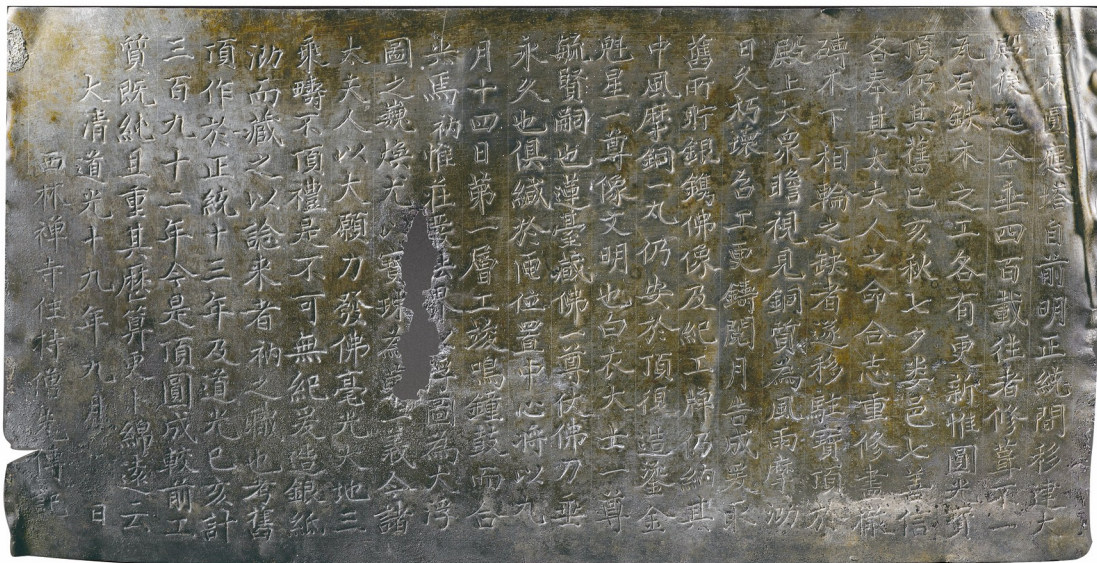 西林圓應塔自前明正統間移建大
殿後迄今垂四百載往者修葺不一
瓦石鉄木之工各有更新惟圓光寳
頂仍其舊已亥秋七夕娄邑七善信
各奉其太夫人之命合志重修盡徹
磚木下相輪之缺者遂移駐寳頂於
殿上大衆瞻視見銅質為風雨摩泐
日久朽壞召工更鑄閲月告成爰取
舊所貯銀鐫佛像及紀工牌仍納其
中風摩銅一丸仍安於頂復造鎏金
魁星一尊像文明也白衣大士一尊
毓賢嗣也蓮臺藏佛一尊仗佛力垂
永久也俱緘於匣位置中心將以九
月十四日第一層工竣鳴鐘鼓而合
尖焉衲惟在衆浮圖為大浮
圖之巍煥尤以寳珠為義今諸
太夫人以大願力發佛毫光大地三
乘疇不頂禮是不可無紀爰造銀紙
泐而藏之以諗来者衲之職也考舊
頂作於正統十三年及道光已亥計
三百九十二年今是頂圓成較前工
質既純且重其歷算更卜綿遠云
大清道光十九年九月 日
西林禪寺住持僧覺傳記